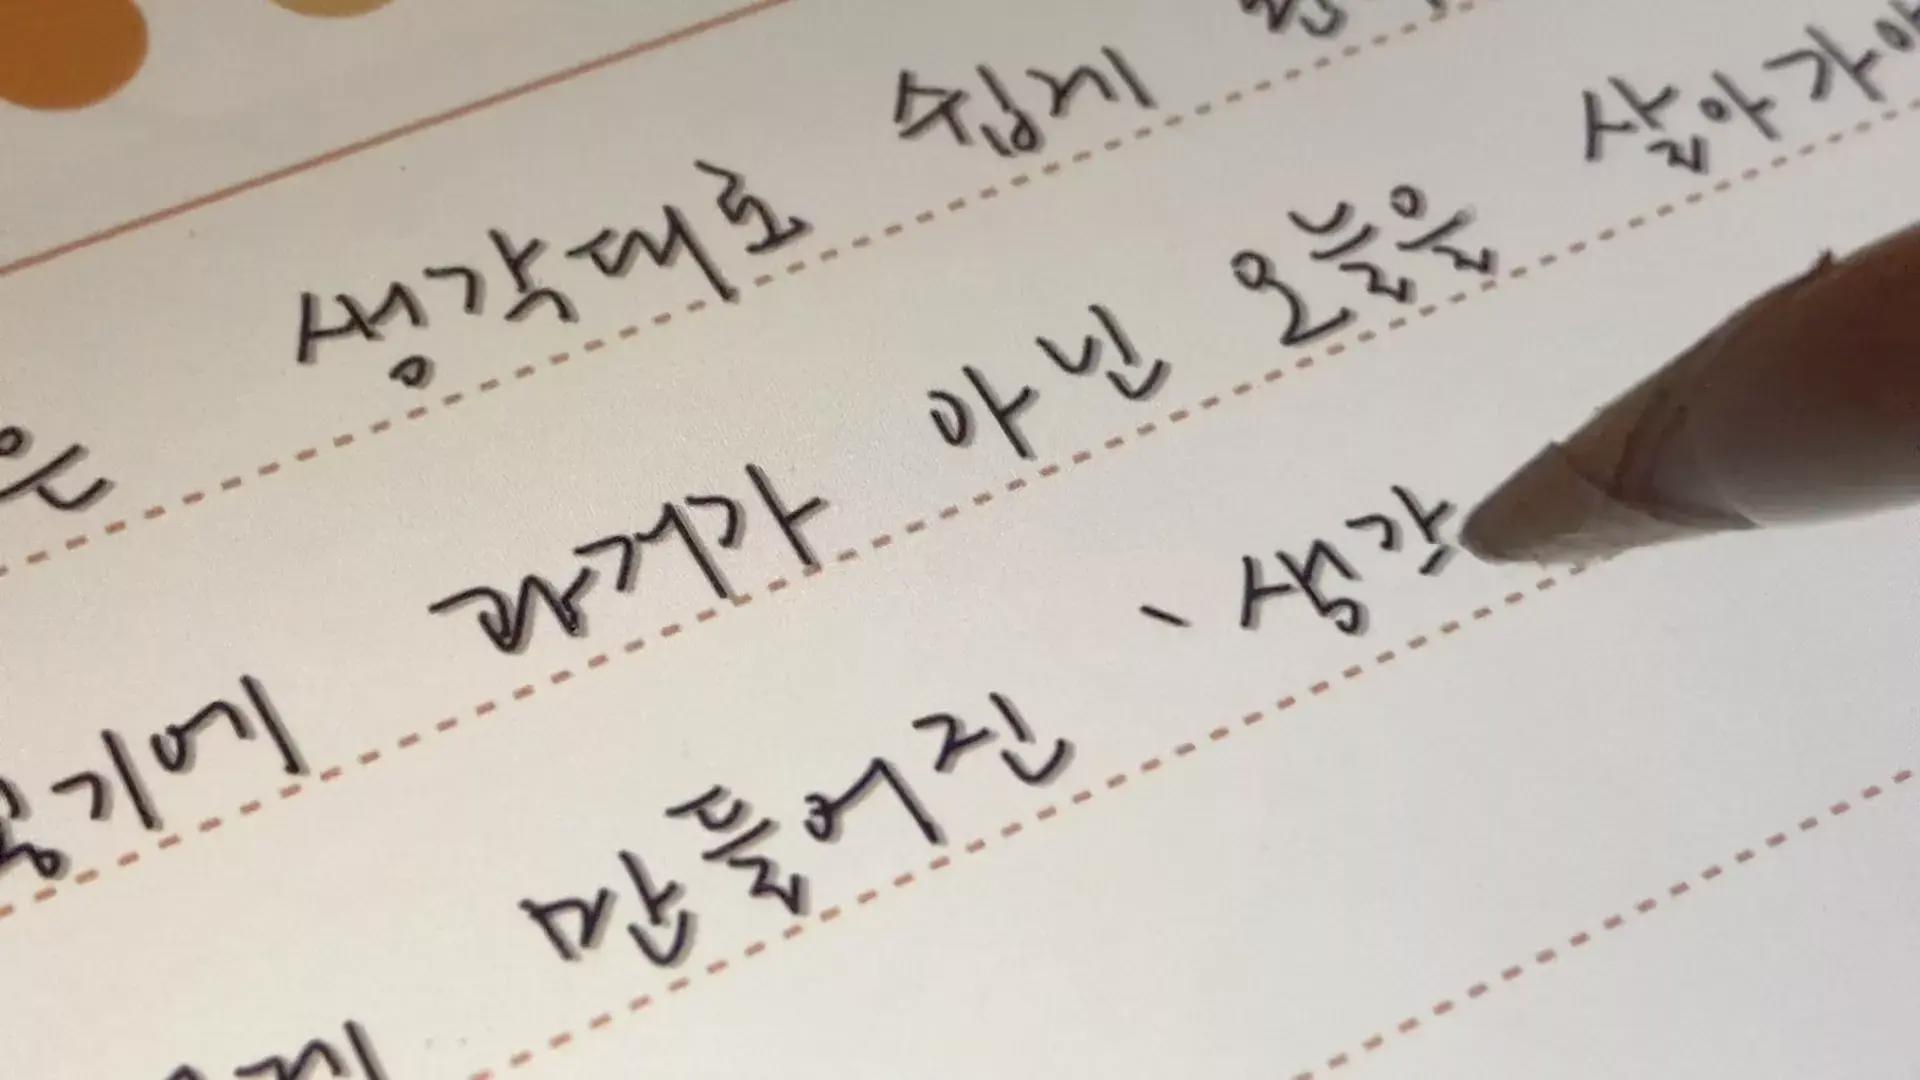 은 생각대로 쉽게
과거가 아닌 오늘을 살아가야
기에 만들어진 、생각
게